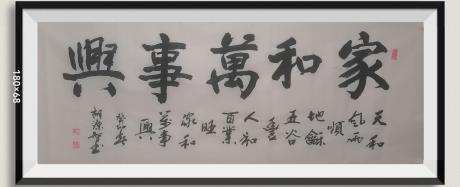 家和萬事興
天和
風雨
順
地龢
五谷
豐
人和
百業
旺
家和
萬事
興
癸卯春
180×68